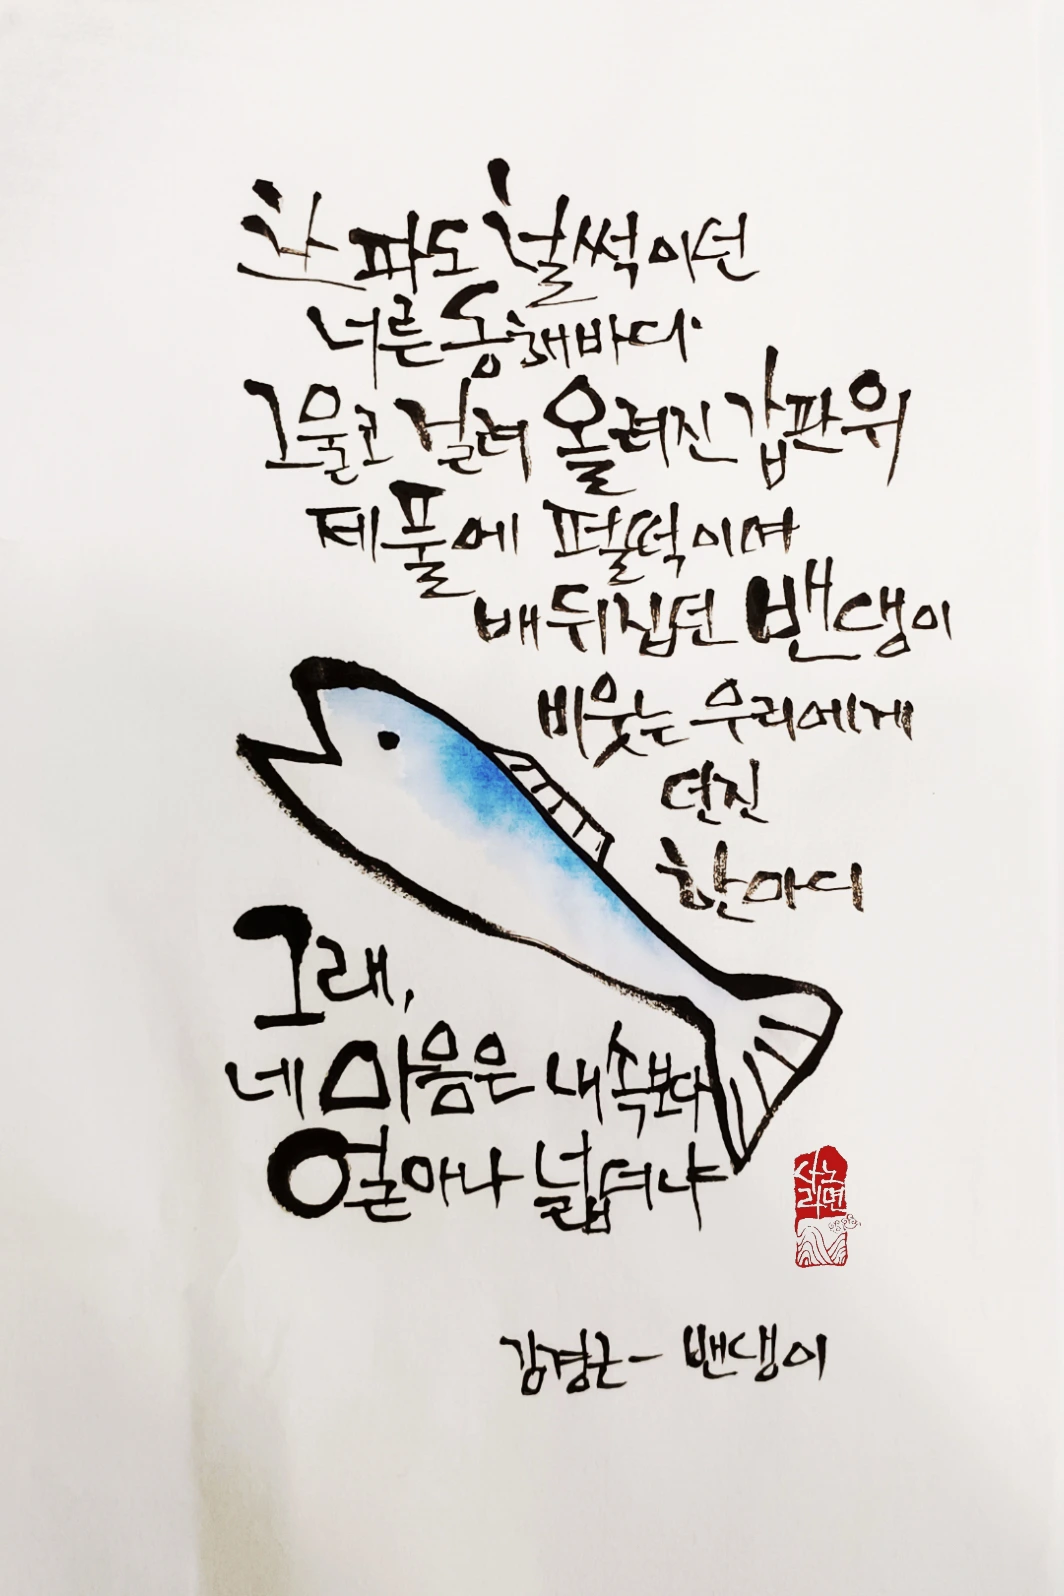 찬 파도 철썩이던
너른 동해바다
그물코 걸려 올려진 갑판위
제풀에 펄떡이며
배 뒤집던 밴댕이
비웃는 우리에게
던진
한마디
그래,
네 마음은 내 속보다
얼마나 넓더냐
사노
라면
김경근 - 밴댕이